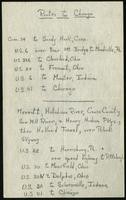 Routes to Chicago
Conn 34 to Sandy Hook, Conn.
US 6 over Bear Mt Bridge to Meadville, Pa
US 322 to Cleveland, Ohio
US 20 to Fremont, Ohio
US 6 to Indiana
US 41 to Chicago
Merritt, Hutchinson River, Cross County
Saw Mill River, Henry Hudson Pkwys;
then Holland Tunnel, over Pulaski
Skyway
US 22 to Harrisburg, Pa
new speed highway to Pittsburgh
US 30 to Mansfield, Ohio
US 30N to Delphos, Ohio
US 30 to Indiana
US 41 to Chicago